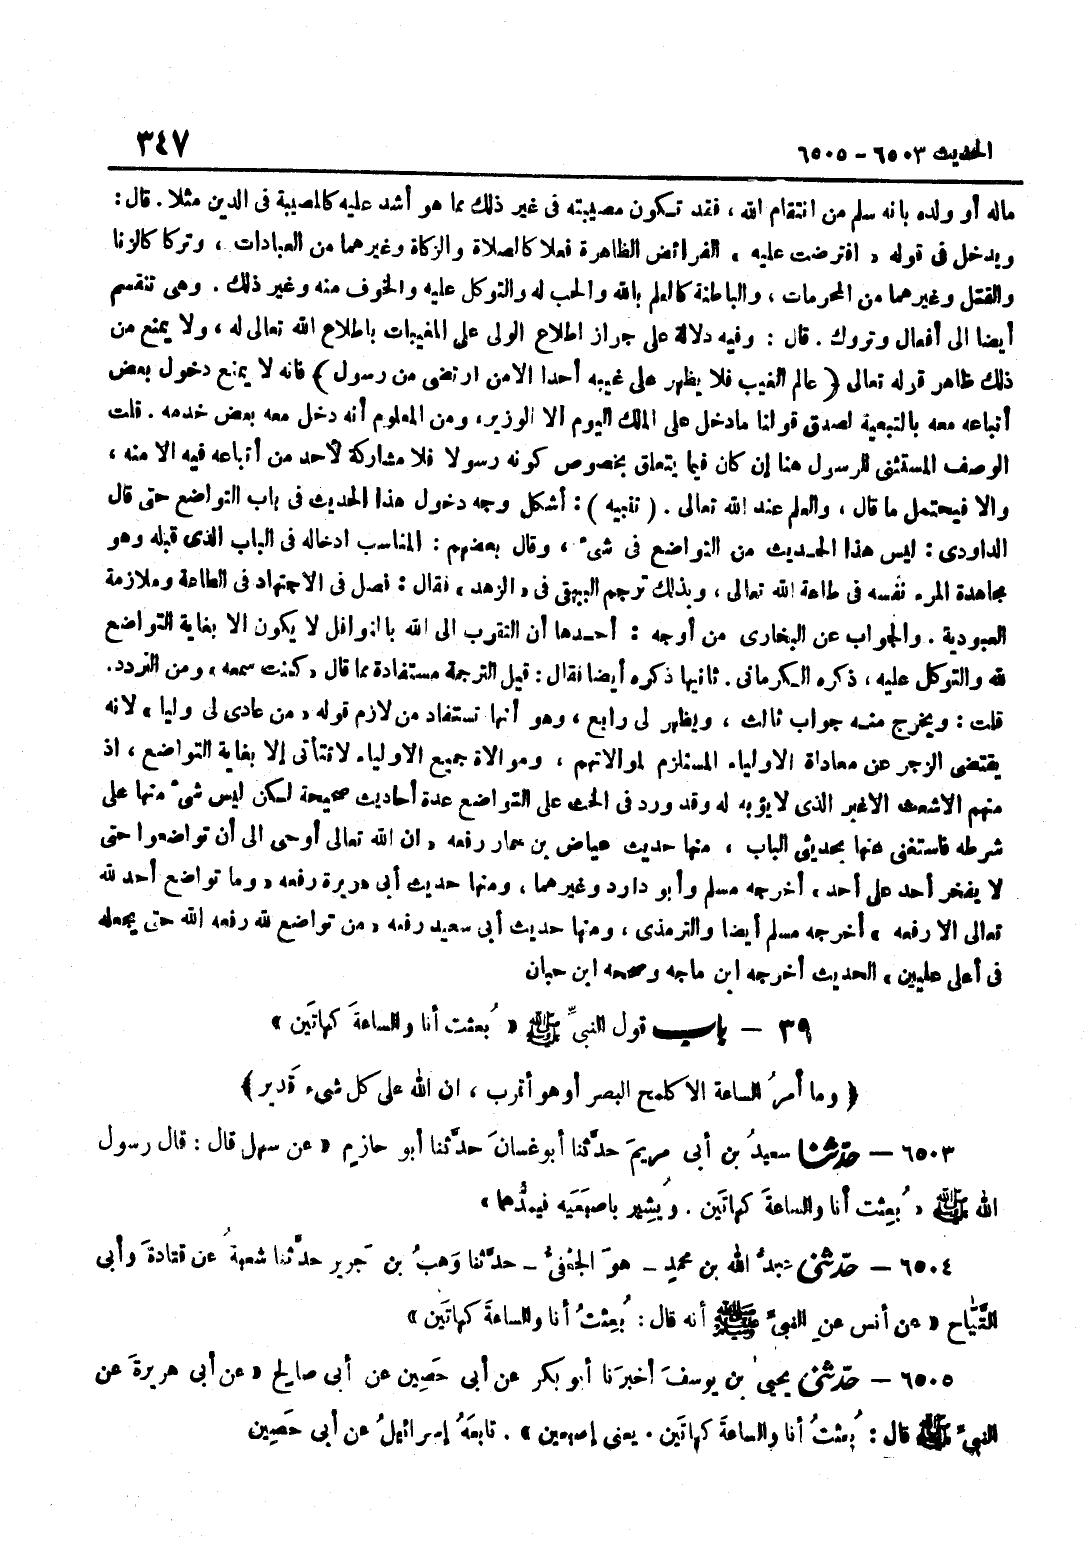 الحديث ٦٥٠٣ - ٦٥٠٥
٣٤٧
ماله أو ولده بانه سلم من انتقام الله ، فقد تكون مصيبته فى غير ذلك مما هو أشد عليه كالمصيبة فى الدين مثلا . قال :
ويدخل فى قوله « افترضت عليه » الفرائض الظاهرة فعلا كالصلاة والزكاة وغيرهما من العبادات ، وتركا كالزنا
والقتل وغيرهما من المحرمات ، والباطنة كالعلم بالله والحب له والتوكل عليه والخوف منه وغير ذلك . وهى تنقسم
أيضا الى أفعال وتروك . قال : وفيه دلالة على جواز اطلاع الولى على المغيبات باطلاع الله تعالى له ، ولا يمنع من
ذلك ظاهر قوله تعالى ﴿ عالم الغيب فلا يظهر على غيبه أحدا الا من ارتضى من رسول ﴾ فانه لا يمنع دخول بعض
أتباعه معه بالتبعية لصدق قولنا مادخل على الملك اليوم الا الوزير، ومن المعلوم أنه دخل معه بعض خدمه . قلت
الوصف المستثنى للرسول هنا إن كان فيما يتعلق بخصوص كونه رسولا فلا مشاركة لأحد من أتباعه فيه الا منه ،
والا فيحتمل ما قال ، والعلم عند الله تعالى . ( تنبيه ) : أشكل وجه دخول هذا الحديث فى باب التواضع حتى قال
الداودى : ليس هذا الحديث من التواضع فى شىء ، وقال بعضهم : المناسب ادخاله فى الباب الذى قبله وهو
مجاهدة المرء نفسه فى طاعة الله تعالى ، وبذلك ترجم البيهقى فى « الزهد » فقال : فصل فى الاجتهاد فى الطاعة وملازمة
العبودية . والجواب عن البخارى من أوجه : أحدها أن التقرب الى الله بالنوافل لا يكون الا بغاية التواضع
لله والتوكل عليه ، ذكره الكرمانى . ثانيها ذكره أيضا فقال : قيل الترجمة مستفادة مما قال « كنت سمعه » ومن التردد.
قلت : ويخرج منه جواب ثالث ، ويظهر لى رابع ، وهو أنها تستفاد من لازم قوله « من عادى لى وليا » لانه
يقتضى الزجر عن معاداة الاولياء المستلزم لموالاتهم ، وموالاة جميع الاولياء لا تتأتى إلا بغاية التواضع ، اذ
منهم الاشعث الاغبر الذى لا يؤبه له وقد ورد فى الحث على التواضع عدة أحاديث صحيحة لكن ليس شىء منها على
شرطه فاستغنى عنها بحديثى الباب ، منها حديث عياض بن حمار رفعه « ان الله تعالى أوحى الى أن تواضعوا حتى
لا يفخر أحد على أحد » أخرجه مسلم وأبو داود وغيرهما ، ومنها حديث أبى هريرة رفعه « وما تواضع أحد لله
تعالى الا رفعه » أخرجه مسلم أيضا والترمذى ، ومنها حديث أبى سعيد رفعه « من تواضع لله رفعه الله حتى يجعله
فى أعلى عليين » الحديث أخرجه ابن ماجه وصححه ابن حبان
٣٩ - باب قول النبىِّ ﷺ « بُعثت أنا والساعةَ كهاتَين »
﴿ وما أمرُ الساعة الا كلمح البصر أو هو أقرب ، ان الله على كل شىء قَدير ﴾
٦٥٠٣ - حدّثنا سعيدُ بن أبى مريمَ حدَّثنا أبو غسانَ حدَّثنا أبو حازمٍ « عن سهل قال : قال رسول
الله ﷺ « بُعِثت أنا والساعةَ كهاتَين . ويُشِير باصبَعَيه فيمدُّهما »
٦٥٠٤ - حدّثنى عبدُ الله بن محمدٍ - هوَ الجُعْفىُّ - حدَّثنا وَهبُ بن جَرير حدَّثنا شعبةُ عن قتادةَ وأبى
التَّيَّاح « عن أنس عنِ النبىِّ ﷺ أنه قال : بُعِثتُ أنا والساعةَ كهاتَين »
٦٥٠٥ - حدّثنى يحيىٰ بن يوسفَ أخبرَنا أبو بكر عن أبى حَصِين عن أبى صالح « عن أبى هريرةَ عن
النبىِّ ﷺ قال : بُعثتُ أنا والساعةَ كهاتَين . يعنى إصبعين » . تابعَهُ إسرائيلُ عن أبى حَصِين